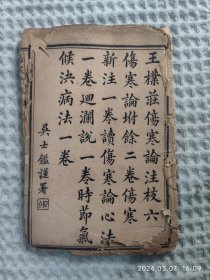 王樸莊傷寒論注枝六
傷寒論坿餘二卷傷寒
新注一卷讀傷寒論心法
一卷迴瀾說一卷時節氣
候決病法一卷
吳士鑑謹署
2024.03.07 16:09